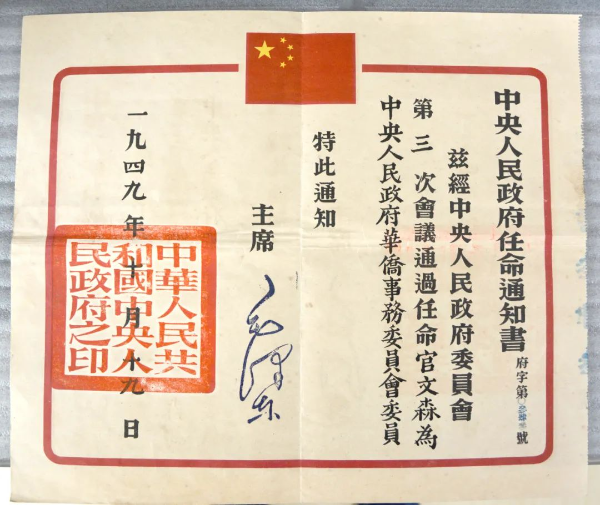 中央人民政府任命通知書
府字第 號
茲經中央人民政府委員會
第三次會議通過任命官文森為
中央人民政府華僑事務委員會委員
特此通知
主席
毛澤东
一九四九年十月十九日
中華人民共
和國中央人
民政府之印